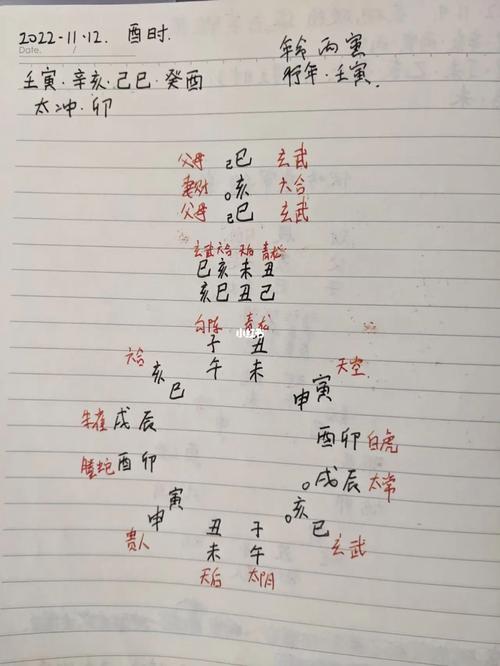 2022-11-12. 酉时.
Date /
年命 丙寅
行年·壬寅
壬寅·辛亥·己巳·癸酉
太冲·卯
父母 己巳 玄武
妻财 ○亥 六合
父母 己巳 玄武
玄武 六合 天后 青龙
巳 亥 未 丑
亥 巳 丑 己
勾陈 青龙
小红书
子 丑
午 未
六合 亥 巳
天空 寅 申
朱雀 戌 辰
酉 卯 白虎
螣蛇 酉 卯
○戌 辰 太常
贵人 寅 申
○亥 巳 玄武
丑 子
未 午
天后 太阴